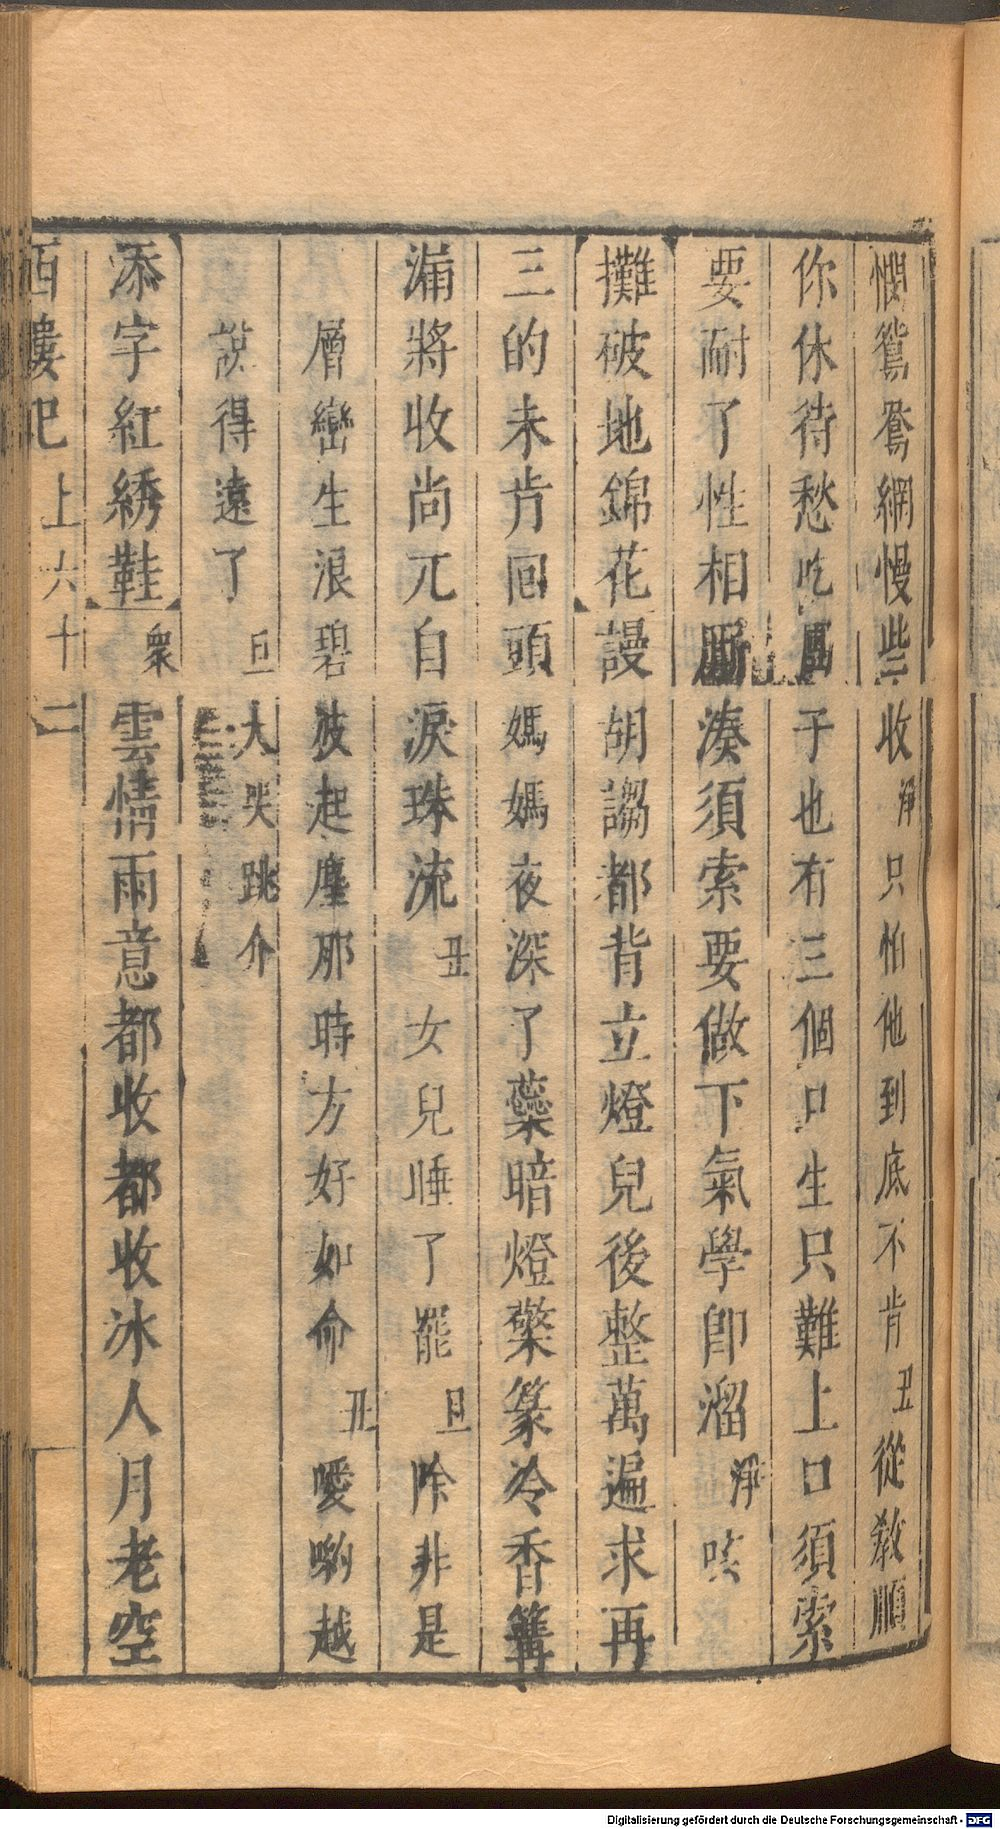 憫鴛鴦網慢些收淨只怕他到底不肯丑從教順
你休待愁吃子也有三個口生只難上口須索
要耐了性相湊須索要做下氣學卽溜淨咳
攤破地錦花謾胡謅都背立燈兒後整萬遍求再
三的未肯回頭媽媽夜深了蘂暗燈檠篆冷香篝
漏將收尚兀自淚珠流丑女兒睡了罷旦除非是
層巒生浪碧波起塵那時方好如命丑噯喲越
說得遠了旦大哭跳介
添字紅綉鞋衆雲情雨意都收都收冰人月老空
西樓記上六十二
Digitalisierung gefördert durch die Deutsche Forschungsgemeinschaft - DFG